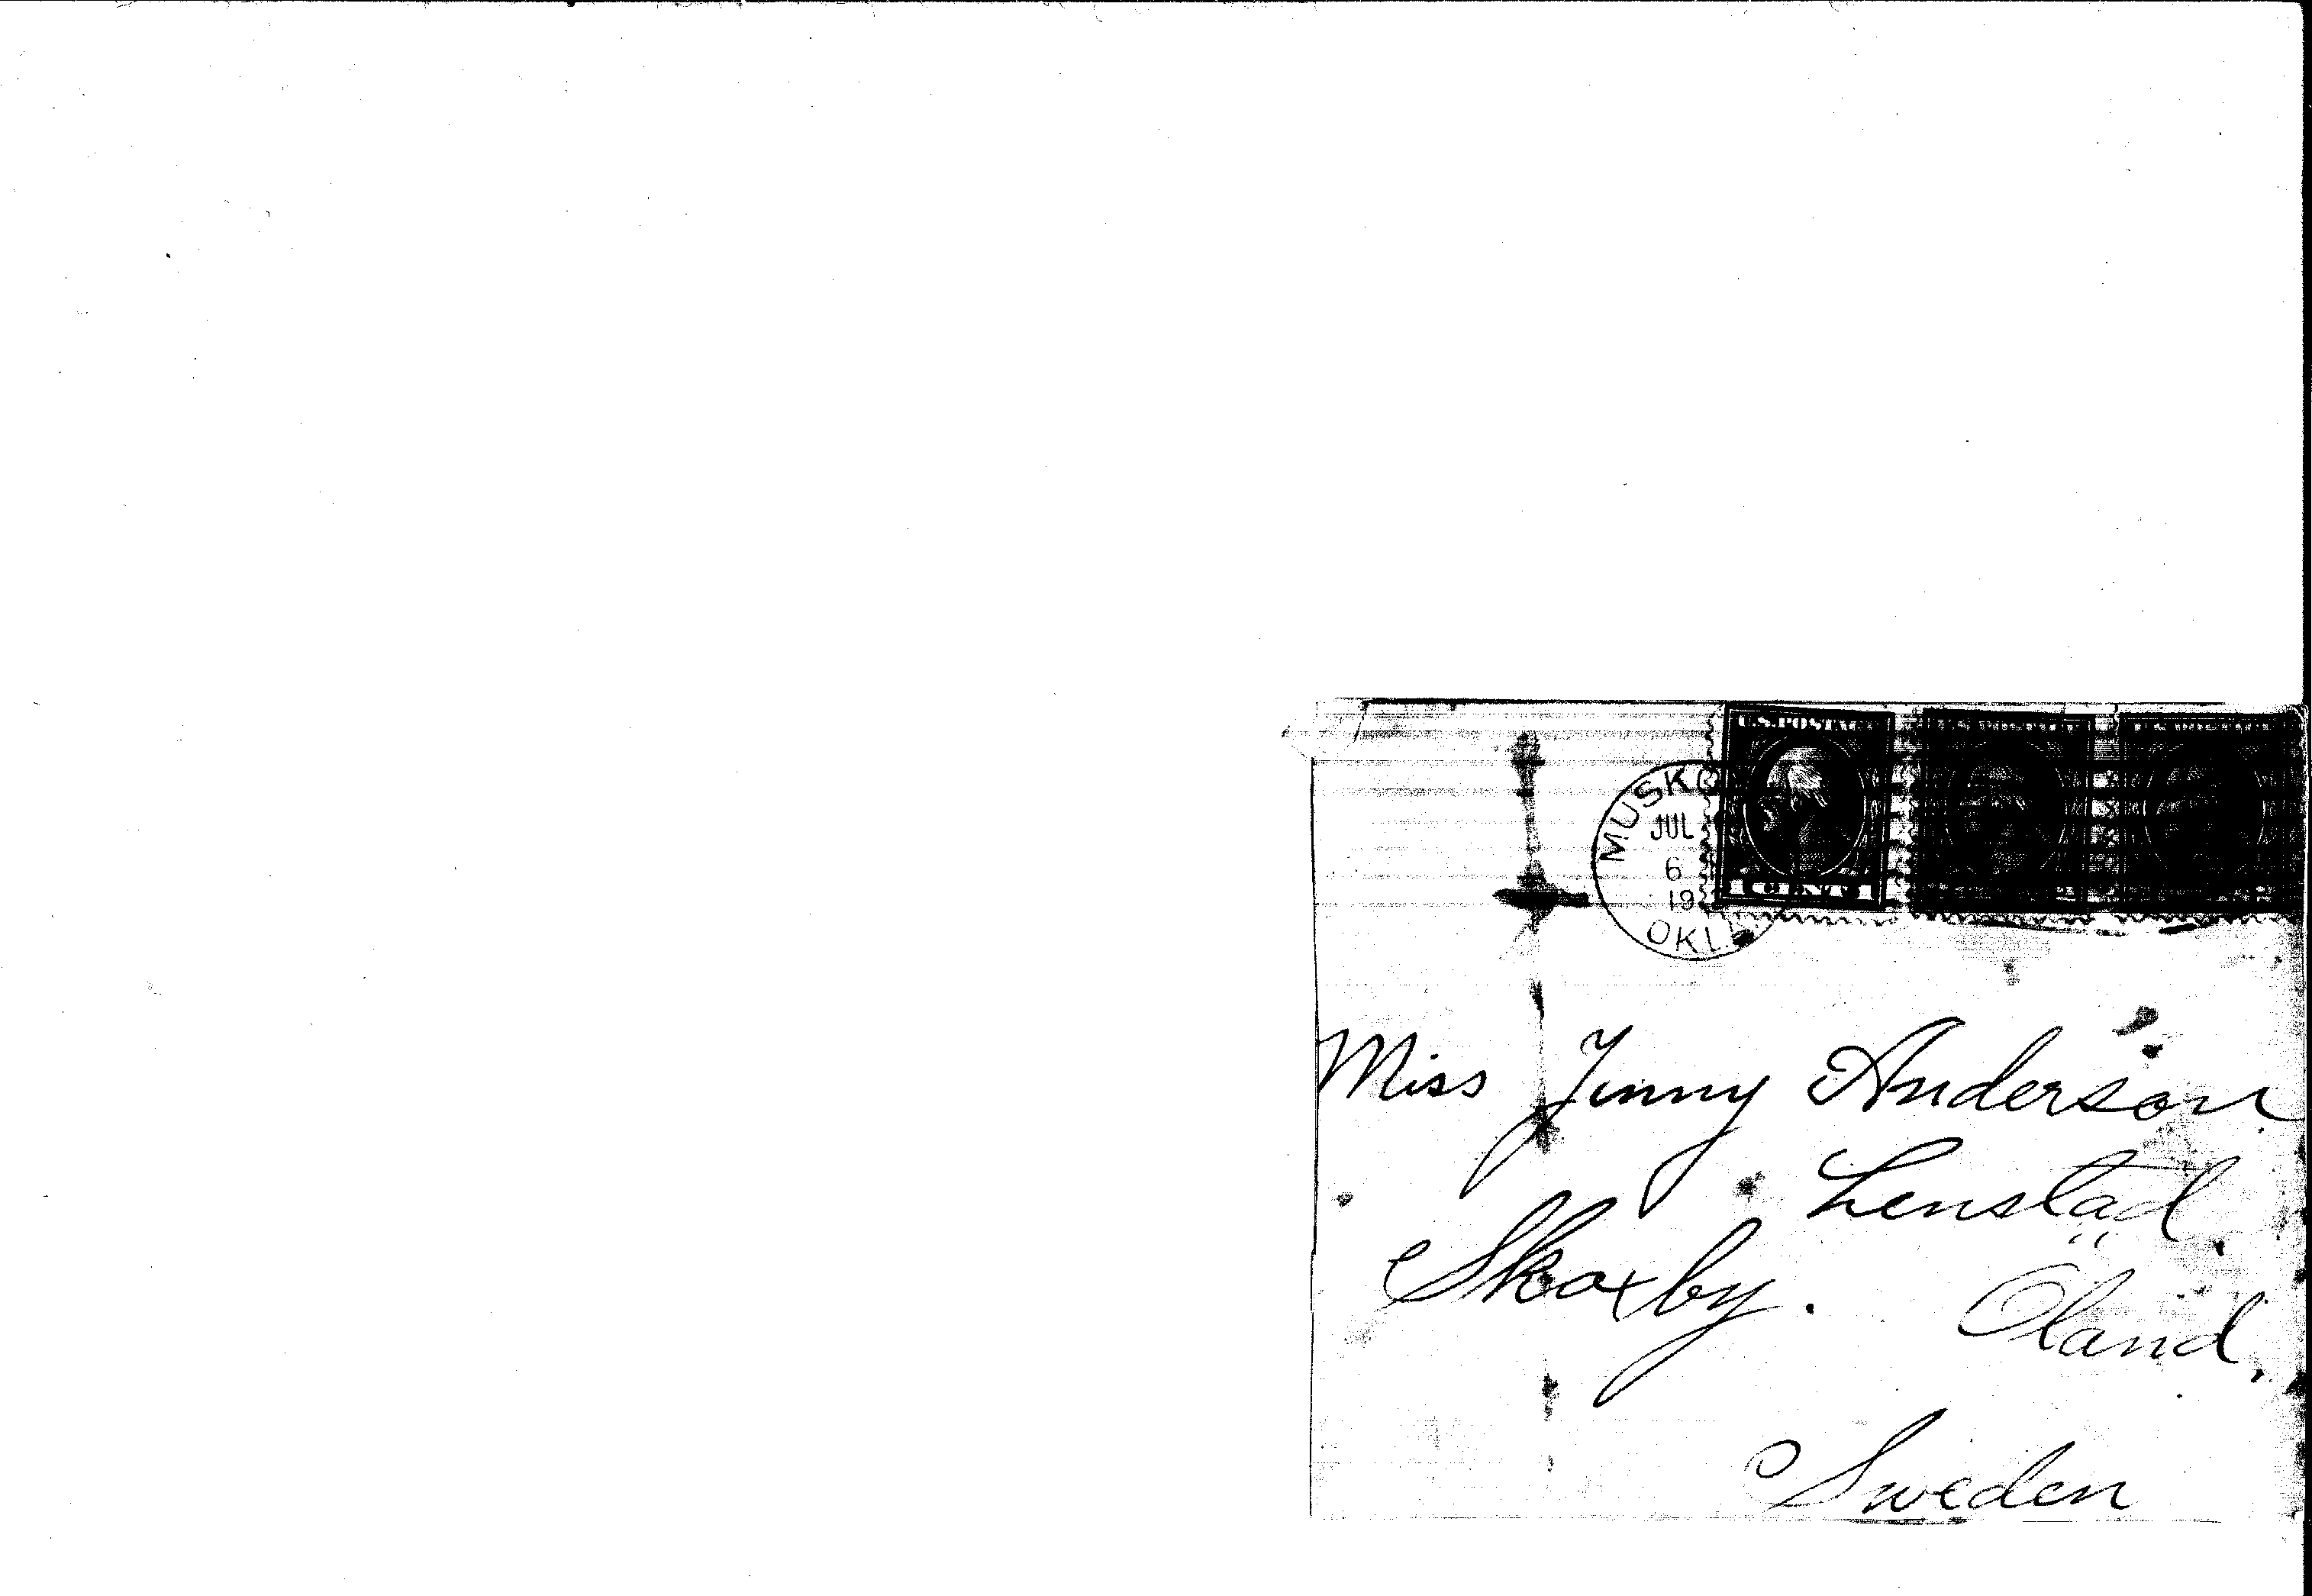 U.S. POSTAGE
MUSKO
JUL
6
19
OKLA
1 CENT 1
Miss Jenny Anderson
Lenstad.
Skoxby. Öland.
Sweden